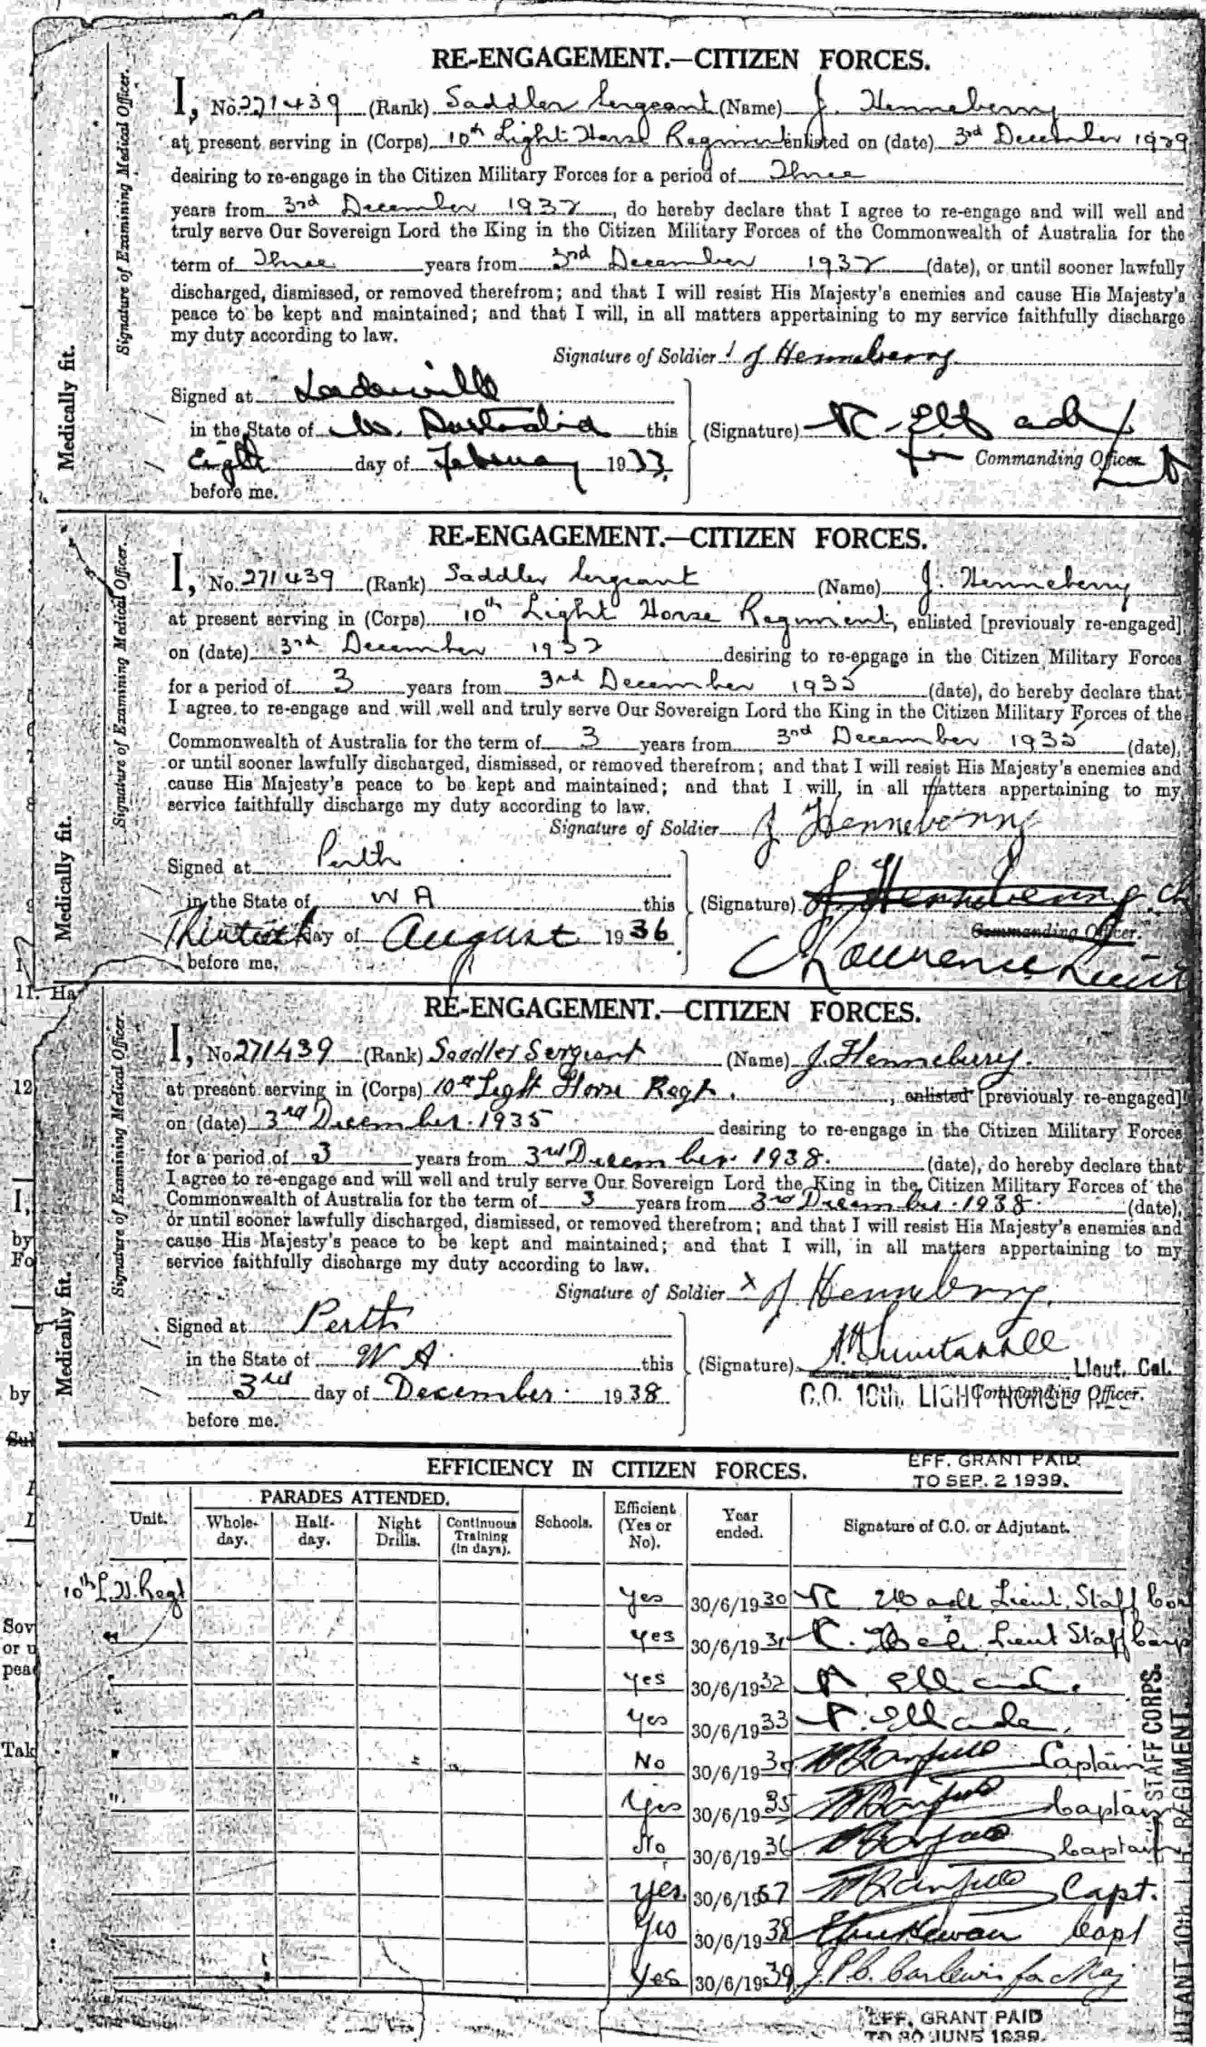 RE-ENGAGEMENT.—CITIZEN FORCES.
I, No. 271439 (Rank) Saddler Sergeant (Name) J. Henneberry
at present serving in (Corps) 10th Light Horse Regiment enlisted on (date) 3rd December 1929
desiring to re-engage in the Citizen Military Forces for a period of Three
years from 3rd December 1932, do hereby declare that I agree to re-engage and will well and
truly serve Our Sovereign Lord the King in the Citizen Military Forces of the Commonwealth of Australia for the
term of Three years from 3rd December 1932 (date), or until sooner lawfully
discharged, dismissed, or removed therefrom; and that I will resist His Majesty's enemies and cause His Majesty's
peace to be kept and maintained; and that I will, in all matters appertaining to my service faithfully discharge
my duty according to law.
Signature of Soldier J Henneberry
Signed at
in the State of W. Australia this (Signature)
Eight day of February 1933 for Commanding Officer
before me.
Medically fit.
Signature of Examining Medical Officer.
RE-ENGAGEMENT.—CITIZEN FORCES.
I, No. 271439 (Rank) Saddler Sergeant (Name) J. Henneberry
at present serving in (Corps) 10th Light Horse Regiment, enlisted [previously re-engaged]
on (date) 3rd December 1932 desiring to re-engage in the Citizen Military Forces
for a period of 3 years from 3rd December 1935 (date), do hereby declare that
I agree to re-engage and will well and truly serve Our Sovereign Lord the King in the Citizen Military Forces of the
Commonwealth of Australia for the term of 3 years from 3rd December 1935 (date),
or until sooner lawfully discharged, dismissed, or removed therefrom; and that I will resist His Majesty's enemies and
cause His Majesty's peace to be kept and maintained; and that I will, in all matters appertaining to my
service faithfully discharge my duty according to law.
Signature of Soldier J Henneberry
Signed at Perth
in the State of W A this (Signature) J Henneberry
day of August 1936 Commanding Officer.
before me. Lawrence Lieut
Medically fit.
Signature of Examining Medical Officer.
11. Ha
RE-ENGAGEMENT.—CITIZEN FORCES.
I, No. 271439 (Rank) Saddler Sergeant (Name) J. Henneberry
at present serving in (Corps) 10th Light Horse Regt., enlisted [previously re-engaged]
on (date) 3rd December 1935 desiring to re-engage in the Citizen Military Forces
for a period of 3 years from 3rd December 1938. (date), do hereby declare that
I agree to re-engage and will well and truly serve Our Sovereign Lord the King in the Citizen Military Forces of the
Commonwealth of Australia for the term of 3 years from 3rd December 1938 (date),
or until sooner lawfully discharged, dismissed, or removed therefrom; and that I will resist His Majesty's enemies and
cause His Majesty's peace to be kept and maintained; and that I will, in all matters appertaining to my
service faithfully discharge my duty according to law.
Signature of Soldier x J Henneberry.
Signed at Perth
in the State of W A this (Signature) Lieut. Col.
3rd day of December 1938 C.O. 10th. LIGHT HORSE Commanding Officer.
before me.
Medically fit.
Signature of Examining Medical Officer.
12
I,
by
Fo
by
Sov
or u
pea
Tak
EFFICIENCY IN CITIZEN FORCES.
EFF. GRANT PAID
TO SEP. 2 1939.
PARADES ATTENDED.
Unit. Whole-day. Half-day. Night Drills. Continuous Training (in days). Schools. Efficient (Yes or No). Year ended. Signature of C.O. or Adjutant.
10th L.H. Regt Yes 30/6/1930 Lieut. Staff Cor
" Yes 30/6/1931 Lieut Staff Corps
" Yes 30/6/1932
" Yes 30/6/1933
" No 30/6/193 Captain
" Yes 30/6/1935 Captain
No 30/6/1936 Captain
Yes 30/6/1937 Capt.
Yes 30/6/1938 Capt
Yes 30/6/1939 for Maj
STAFF CORPS.
10th L.H. REGIMENT.
EFF. GRANT PAID
TO 30 JUNE 1939.